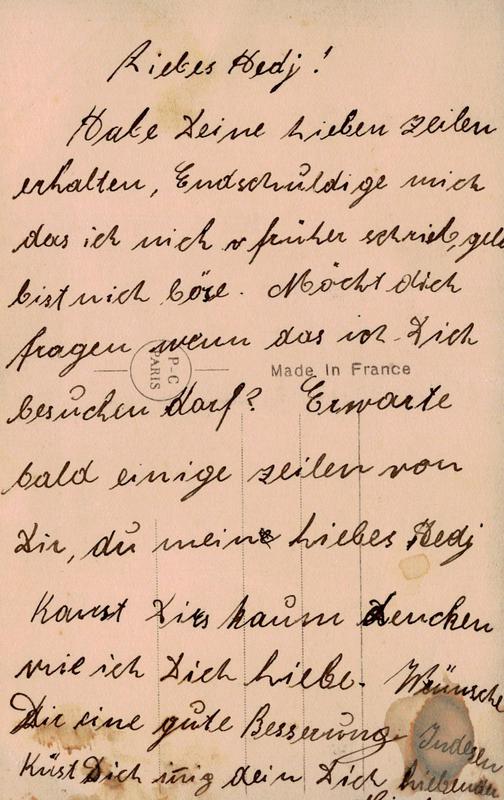 Liebes Hedj!
Habe Deine Lieben Zeilen
erhalten, Endschuldige mich
das ich nich früher schrieb, gel
bist nich böse. Möcht dich
fragen wenn das ich Dich
P-C
PARIS
Made In France
besuchen darf? Erwarte
bald einige zeilen von
Dir, du mein liebes Hedj
Kanst Dirs kaum Dencken
wie ich Dich Liebe. Wünsche
Dir eine gute Besserung Indesen
Küst Dich inig dein Dich Liebender